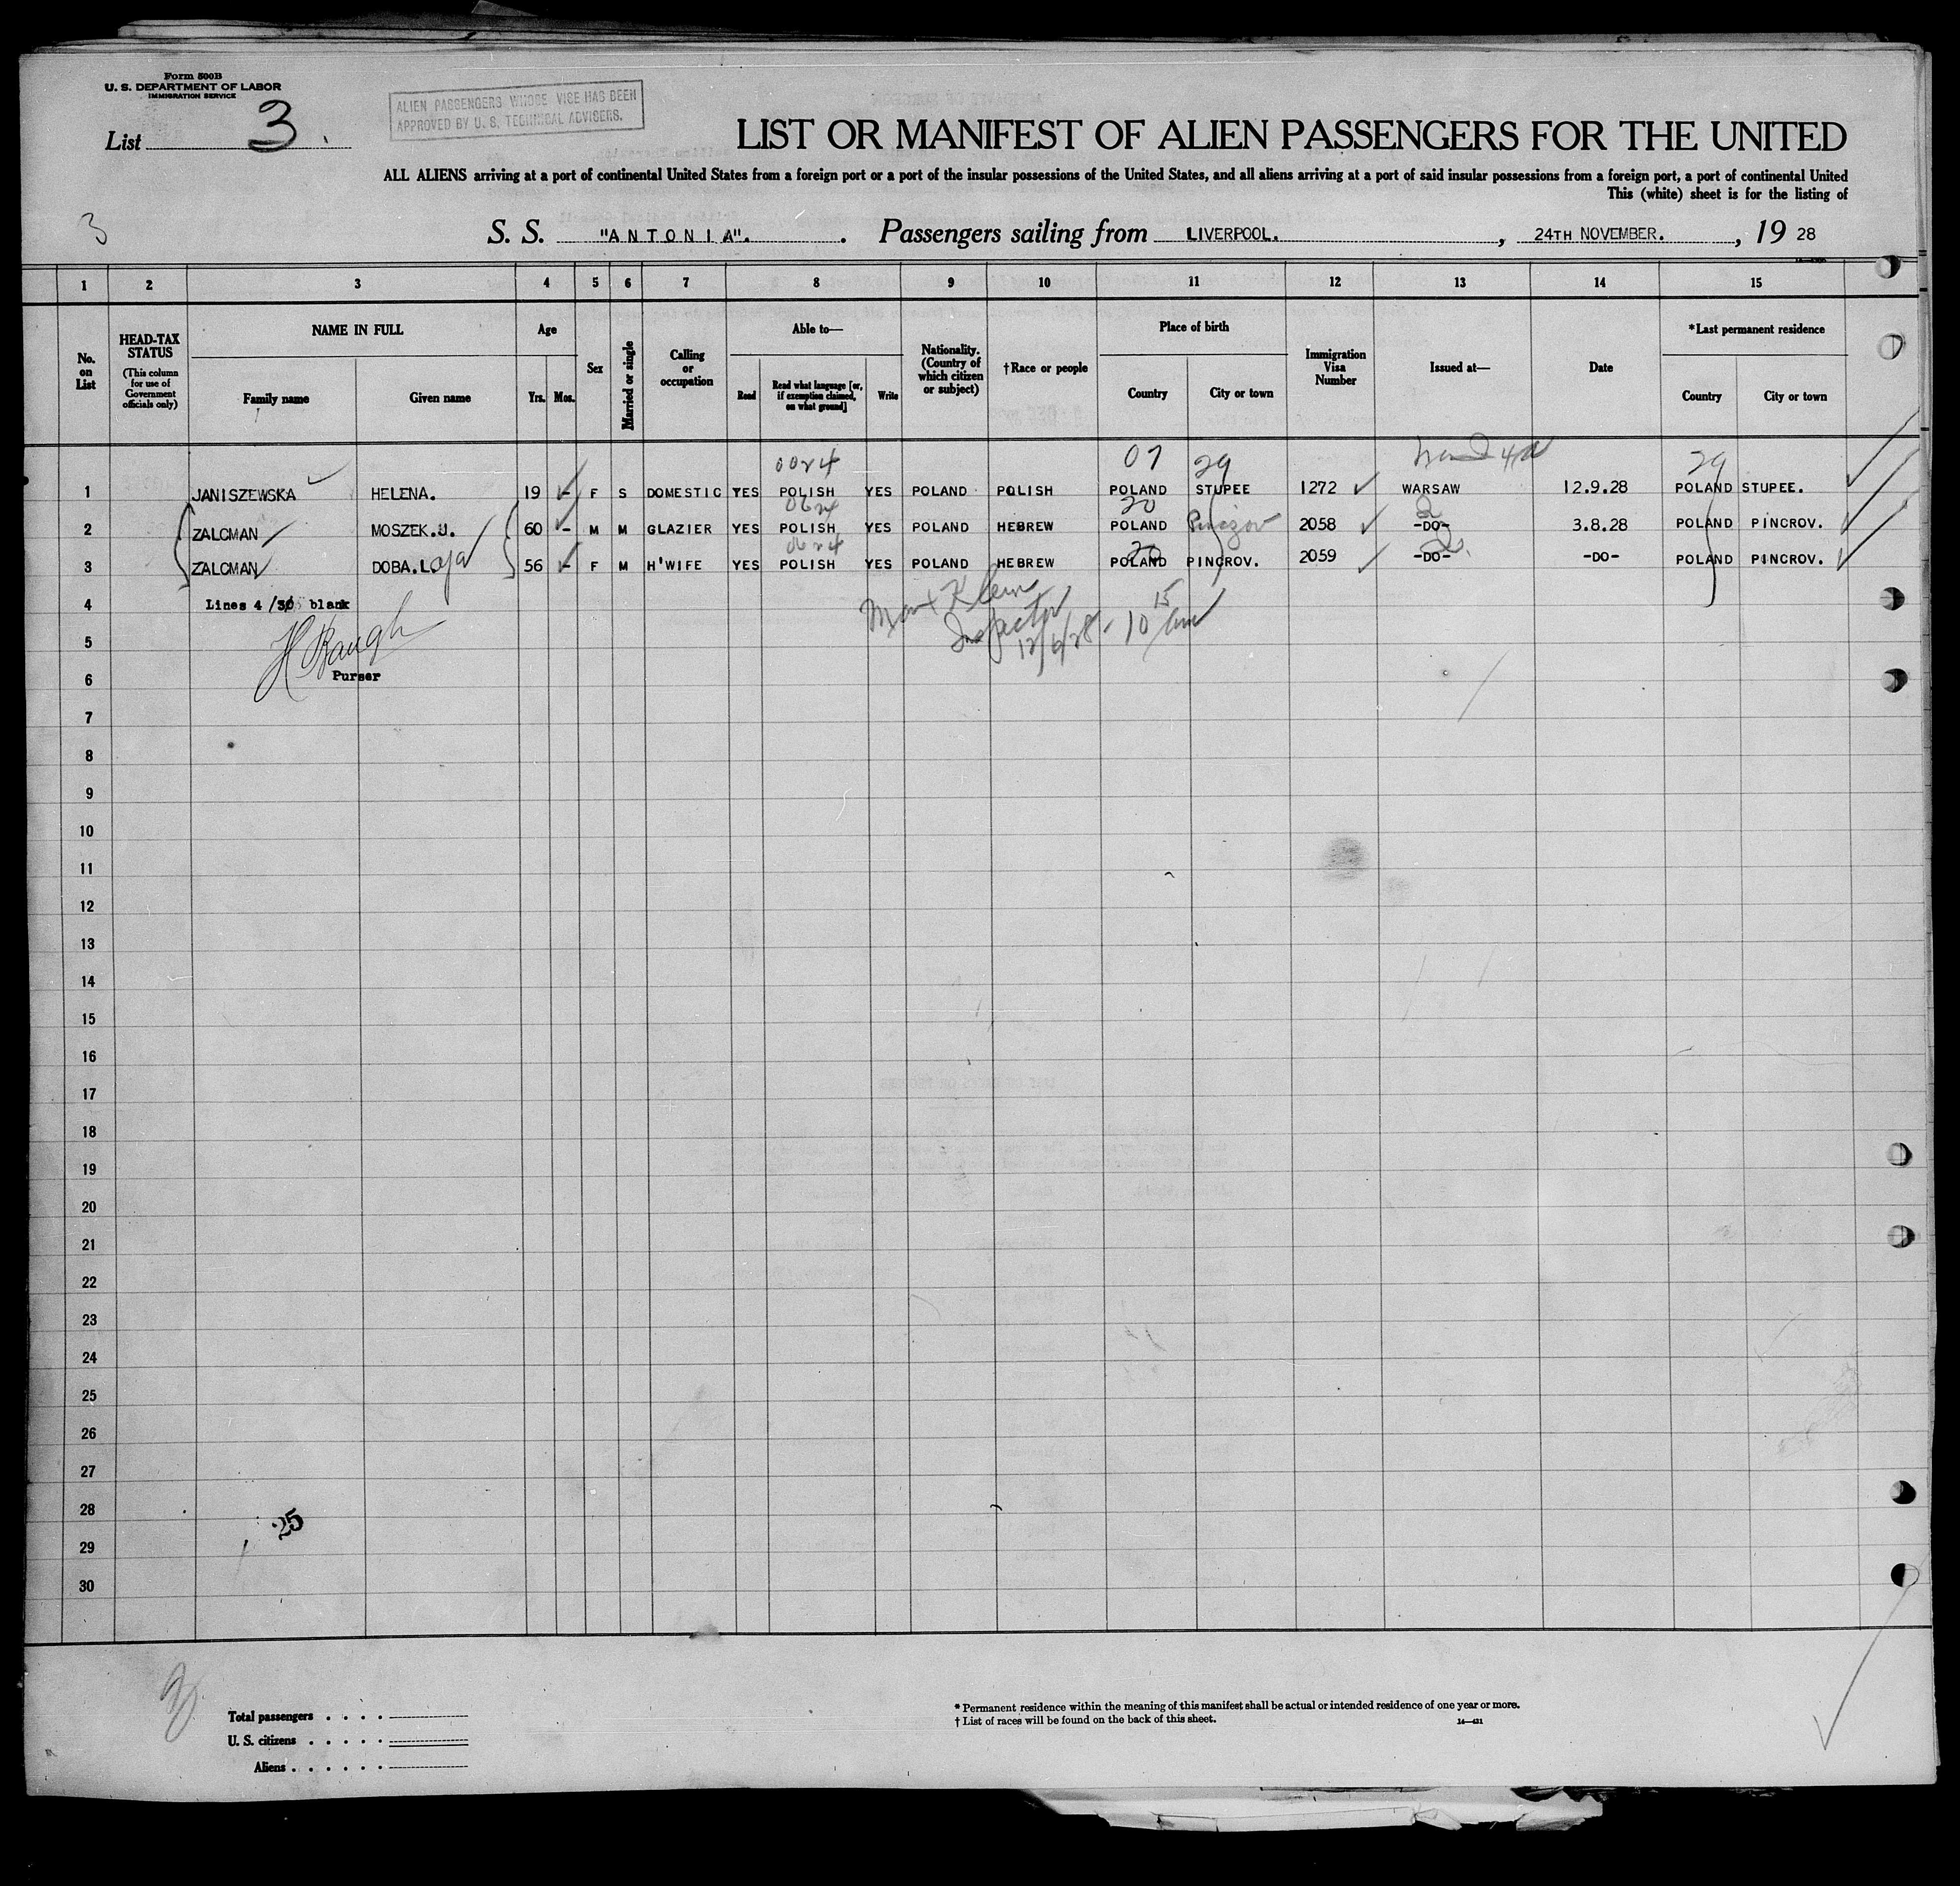 Form 500B
U. S. DEPARTMENT OF LABOR
IMMIGRATION SERVICE
List 3.
ALIEN PASSENGERS WHOSE VISE HAS BEEN
APPROVED BY U. S. TECHNICAL ADVISERS.
LIST OR MANIFEST OF ALIEN PASSENGERS FOR THE UNITED
ALL ALIENS arriving at a port of continental United States from a foreign port or a port of the insular possessions of the United States, and all aliens arriving at a port of said insular possessions from a foreign port, a port of continental United
This (white) sheet is for the listing of
3
S. S. "ANTONIA". . Passengers sailing from LIVERPOOL. , 24TH NOVEMBER. , 19 28
1 2 3 4 5 6 7 8 9 10 11 12 13 14 15
No. on List
HEAD-TAX STATUS
(This column for use of Government officials only)
NAME IN FULL
Family name Given name
Age
Yrs. Mos.
Sex
Married or single
Calling or occupation
Able to—
Read Read what language [or, if exemption claimed, on what ground] Write
Nationality. (Country of which citizen or subject)
†Race or people
Place of birth
Country City or town
Immigration Visa Number
Issued at—
Date
*Last permanent residence
Country City or town
0024 07 29 29
1 JANISZEWSKA HELENA. 19 - F S DOMESTIC YES POLISH YES POLAND POLISH POLAND STUPEE 1272 WARSAW 12.9.28 POLAND STUPEE.
0624 20 2
2 ZALCMAN MOSZEK.J. 60 - M M GLAZIER YES POLISH YES POLAND HEBREW POLAND Pinczov 2058 -DO- 3.8.28 POLAND PINCROV.
0624 20 2
3 ZALCMAN DOBA.Laja 56 - F M H'WIFE YES POLISH YES POLAND HEBREW POLAND PINCROV. 2059 -DO- -DO- POLAND PINCROV.
4 Lines 4/30 blank
Max Klein
Inspector
12/6/28 - 10 15 am
5 H Baugh
6 Purser
7
8
9
10
11
12
13
14
15
16
17
18
19
20
21
22
23
24
25
26
27
28
25
29
30
Total passengers
U. S. citizens
Aliens
* Permanent residence within the meaning of this manifest shall be actual or intended residence of one year or more.
† List of races will be found on the back of this sheet.
14—421